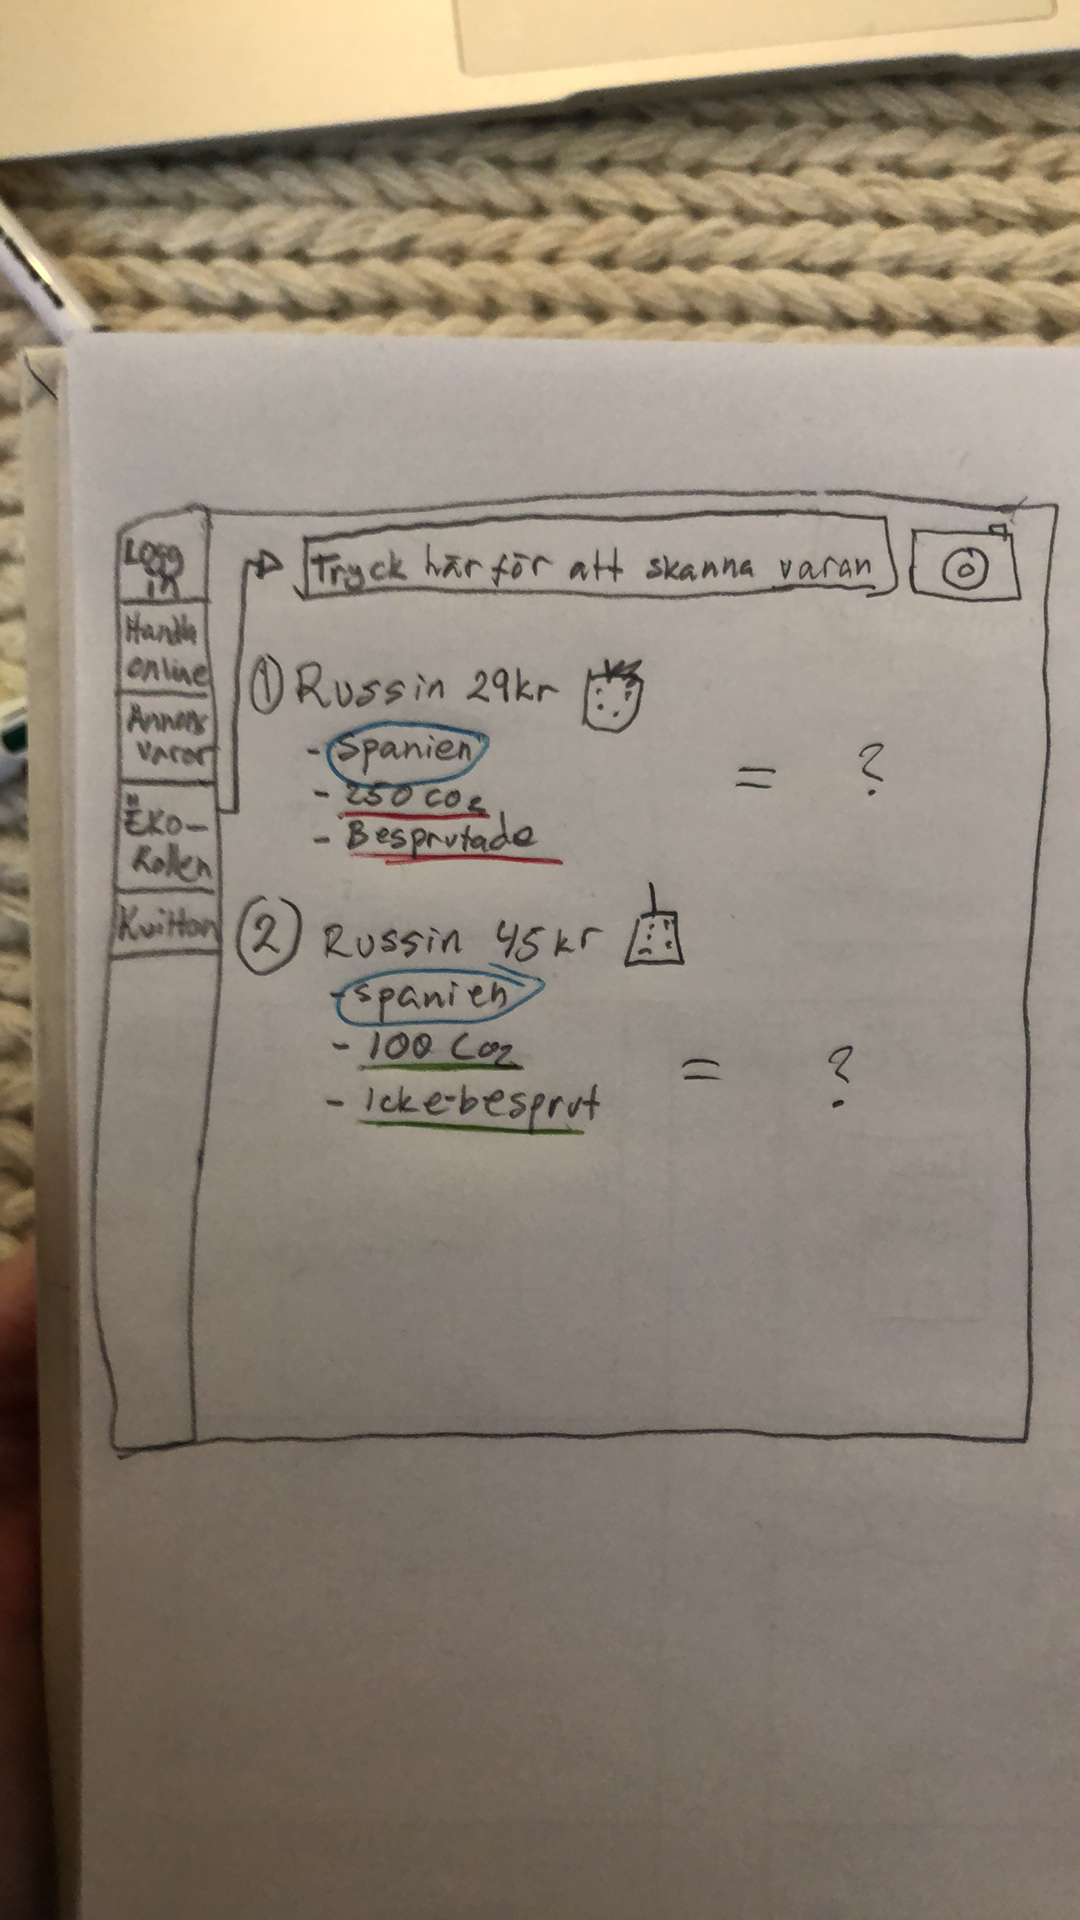 Logg
in
Handla
online
Annons
varor
EKO-
Kollen
Kvitton
Tryck här för att skanna varan
1 Russin 29kr
- Spanien
- 250 CO2
- Besprutade
= ?
2 Russin 45kr
- Spanien
- 100 CO2
- Icke-besprut
= ?